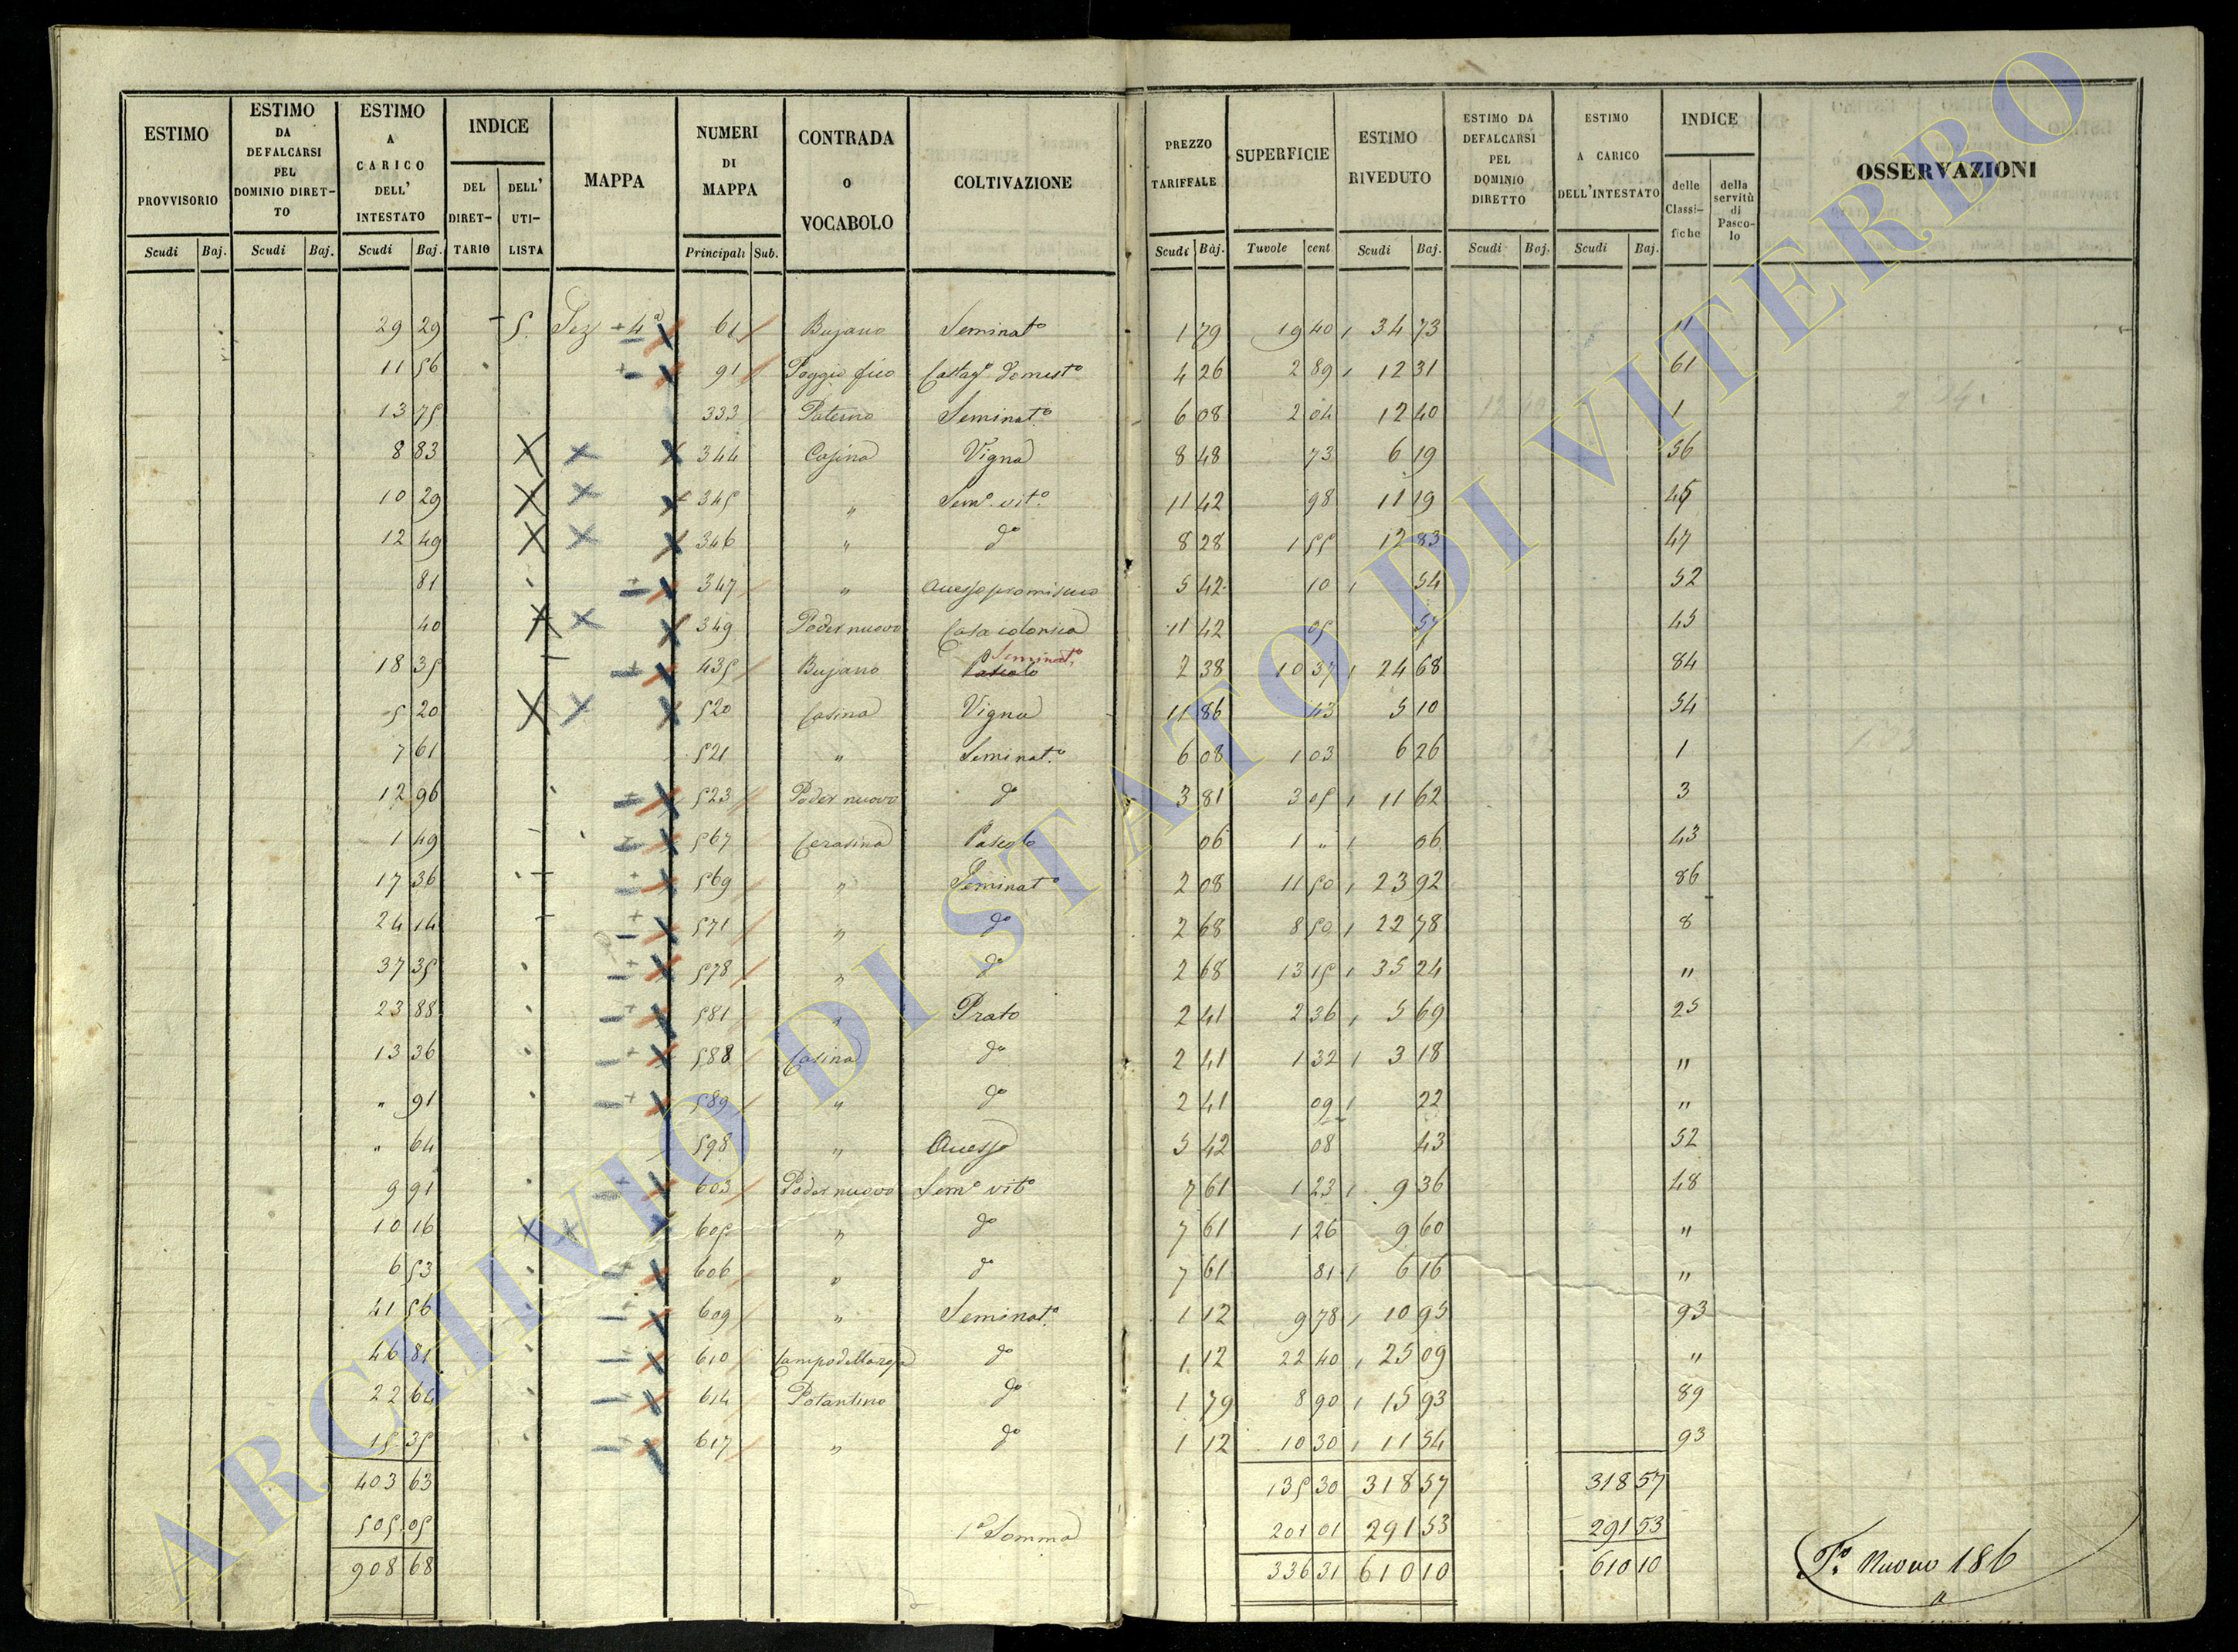 ESTIMO PROVVISORIO | ESTIMO DA DEFALCARSI PEL DOMINIO DIRET-TO | ESTIMO A CARICO DELL' INTESTATO | INDICE DEL DIRET-TARIO | DELL' UTI-LISTA | MAPPA | NUMERI DI MAPPA | CONTRADA O VOCABOLO | COLTIVAZIONE | PREZZO TARIFFALE | SUPERFICIE | ESTIMO RIVEDUTO | ESTIMO DA DEFALCARSI PEL DOMINIO DIRETTO | ESTIMO A CARICO DELL'INTESTATO | INDICE delle Classi-fiche | della servitù di Pasco-lo | OSSERVAZIONI
Scudi | Baj. | Scudi | Baj. | Scudi | Baj. | Principali | Sub. | Scudi | Baj. | Tavole | cent | Scudi | Baj. | Scudi | Baj. | Scudi | Baj.
29 29 | 5. | Sez 4ª | 61 | Bujano | Seminatº | 1 79 | 19 40 | 34 73 | 11
11 56 | 91 | Poggio fico | Castagº domestº | 4 26 | 2 89 | 12 31 | 61
13 75 | 333 | Paterno | Seminatº | 6 08 | 2 04 | 12 40 | 1
8 83 | 344 | Casina | Vigna | 8 48 | 73 | 6 19 | 56
10 29 | 345 | " | Semº vitº | 11 42 | 98 | 11 19 | 45
12 49 | 346 | " | dº | 8 28 | 1 55 | 12 83 | 47
81 | 347 | " | Accesso promiscuo | 5 42 | 10 | 54 | 52
40 | 349 | Poder nuovo | Casa colonica | 11 42 | 05 | 57 | 45
18 35 | 435 | Bujano | Pascolo Seminatº | 2 38 | 10 37 | 24 68 | 84
5 20 | 520 | Casina | Vigna | 11 86 | 43 | 5 10 | 54
7 61 | 521 | " | Seminatº | 6 08 | 1 03 | 6 26 | 1
12 96 | 523 | Poder nuovo | dº | 3 81 | 3 05 | 11 62 | 3
1 49 | 567 | Cerasina | Pascolo | 06 | 1 " | 06 | 43
17 36 | 569 | " | Seminatº | 2 08 | 11 50 | 23 92 | 86
24 14 | 571 | " | dº | 2 68 | 8 50 | 22 78 | 8
37 35 | 578 | " | dº | 2 68 | 13 15 | 35 24 | "
23 88 | 581 | " | Prato | 2 41 | 2 36 | 5 69 | 25
13 36 | 588 | Casina | dº | 2 41 | 1 32 | 3 18 | "
" 91 | 589 | " | dº | 2 41 | 09 | 22 | "
" 64 | 598 | " | Accesso | 5 42 | 08 | 43 | 52
9 91 | 603 | Poder nuovo | Semº vitº | 7 61 | 1 23 | 9 36 | 48
10 16 | 605 | " | dº | 7 61 | 1 26 | 9 60 | "
6 53 | 606 | " | dº | 7 61 | 81 | 6 16 | "
41 56 | 609 | " | Seminatº | 1 12 | 9 78 | 10 95 | 93
46 81 | 610 | dº | 1 12 | 22 40 | 25 09 | "
22 64 | 614 | Potantino | dº | 1 79 | 8 90 | 15 93 | 89
15 35 | 617 | " | dº | 1 12 | 10 30 | 11 54 | 93
403 63 | 135 30 | 318 57 | 318 57
505 05 | 1ª Somma | 201 01 | 291 53 | 291 53
908 68 | 336 31 | 610 10 | 610 10 | Fº Nuovo 186
ARCHIVIO DI STATO DI VITERBO